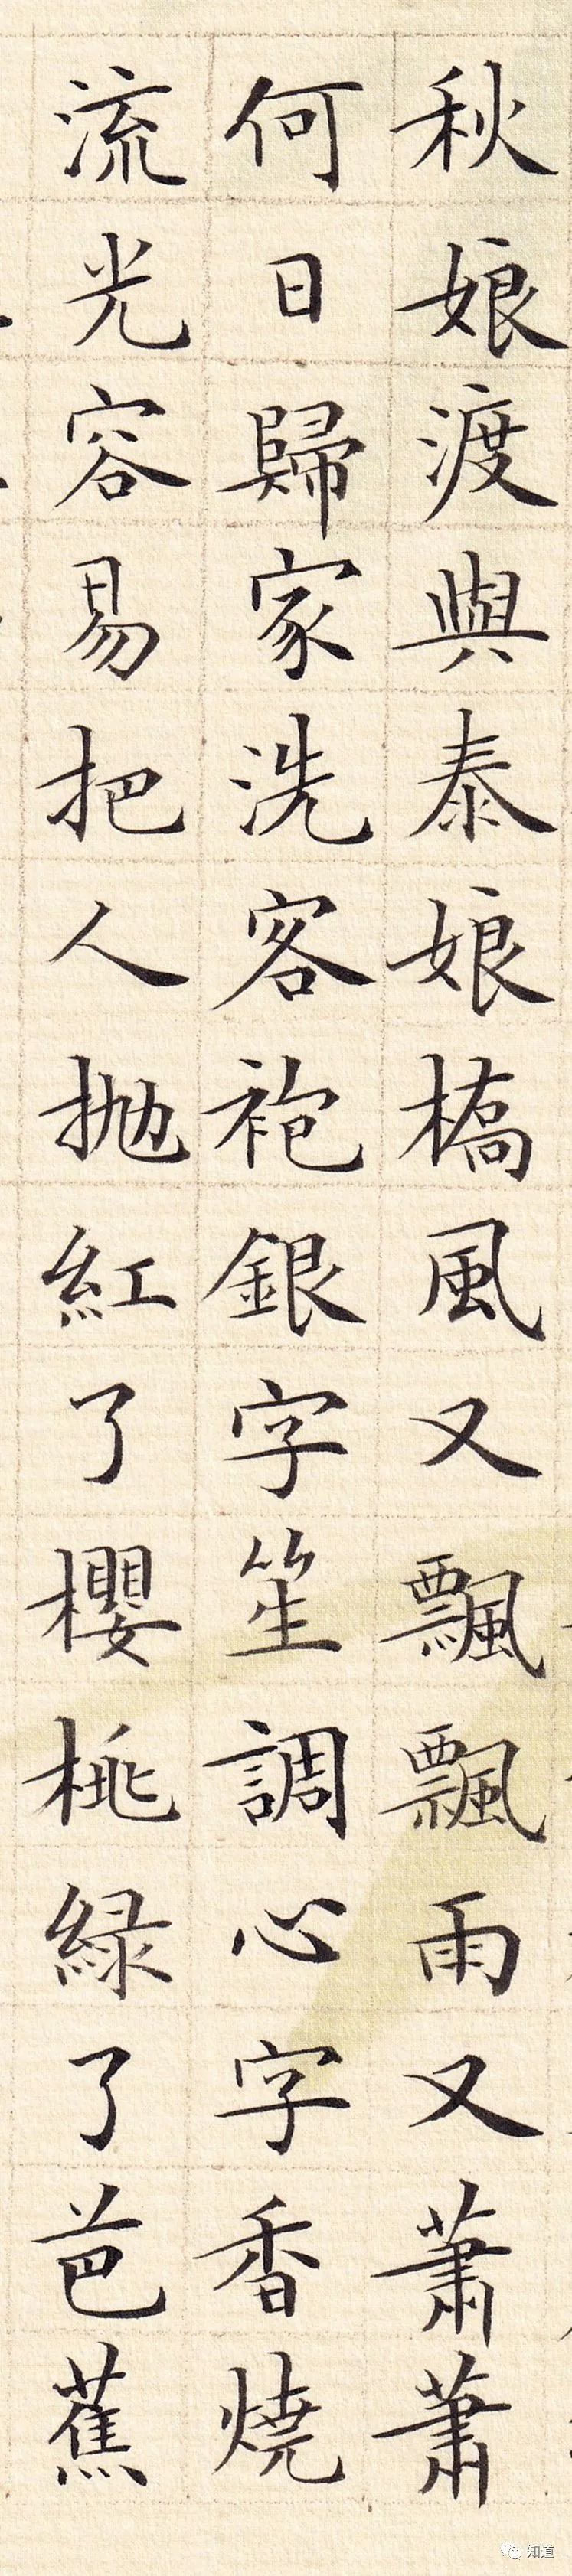 秋娘渡與泰娘橋風又飄飄雨又蕭蕭
何日歸家洗客袍銀字笙調心字香燒
流光容易把人抛紅了櫻桃緑了芭蕉
知道